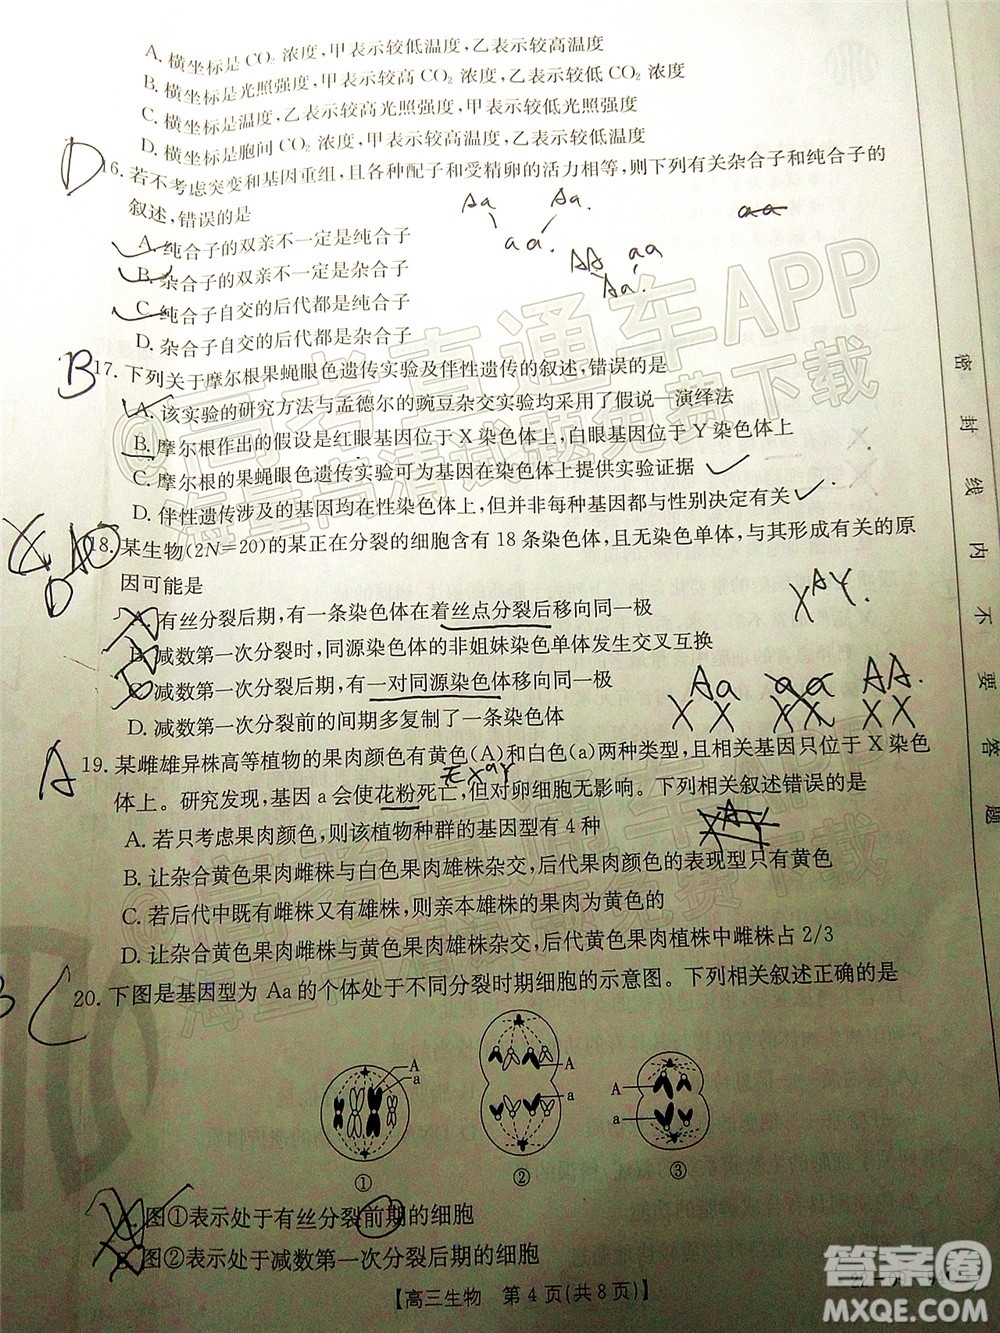 A. 横坐标是 CO₂ 浓度,甲表示较低温度,乙表示较高温度
B. 横坐标是光照强度,甲表示较高 CO₂ 浓度,乙表示较低 CO₂ 浓度
C. 横坐标是温度,乙表示较高光照强度,甲表示较低光照强度
D. 横坐标是胞间 CO₂ 浓度,甲表示较高温度,乙表示较低温度
D
16. 若不考虑突变和基因重组,且各种配子和受精卵的活力相等,则下列有关杂合子和纯合子的
叙述,错误的是
Aa Aa.
aa.
aa
A. 纯合子的双亲不一定是纯合子
AA aa
Aa.
B. 杂合子的双亲不一定是杂合子
C. 纯合子自交的后代都是纯合子
D. 杂合子自交的后代都是杂合子
B
17. 下列关于摩尔根果蝇眼色遗传实验及伴性遗传的叙述,错误的是
A. 该实验的研究方法与孟德尔的豌豆杂交实验均采用了假说—演绎法
B. 摩尔根作出的假设是红眼基因位于 X 染色体上,白眼基因位于 Y 染色体上
C. 摩尔根的果蝇眼色遗传实验可为基因在染色体上提供实验证据
D. 伴性遗传涉及的基因均在性染色体上,但并非每种基因都与性别决定有关
D
18. 某生物(2N=20)的某正在分裂的细胞含有 18 条染色体,且无同源染色体,与其形成有关的原
因可能是
XAY.
A. 有丝分裂后期,有一条染色体在着丝点分裂后移向同一极
B. 减数第一次分裂时,同源染色体的非姐妹染色单体发生交叉互换
C. 减数第一次分裂后期,有一对同源染色体移向同一极
Aa aa AA.
XX XX XX
D. 减数第一次分裂前的间期多复制了一条染色体
A
19. 某雌雄异株高等植物的果肉颜色有黄色(A)和白色(a)两种类型,且相关基因只位于 X 染色
无XaY
体上。研究发现,基因 a 会使花粉死亡,但对卵细胞无影响。下列相关叙述错误的是
A. 若只考虑果肉颜色,则该植物种群的基因型有 4 种
B. 让杂合黄色果肉雌株与白色果肉雄株杂交,后代果肉颜色的表现型只有黄色
C. 若后代中既有雌株又有雄株,则亲本雄株的果肉为黄色的
D. 让杂合黄色果肉雌株与黄色果肉雄株杂交,后代黄色果肉植株中雌株占 2/3
20. 下图是基因型为 Aa 的个体处于不同分裂时期细胞的示意图。下列相关叙述正确的是
A
a
A
a
A
a
① ② ③
A. 图①表示处于有丝分裂前期的细胞
B. 图②表示处于减数第一次分裂后期的细胞
【高三生物 第 4 页(共 8 页)】
密封线内不要答题
@高考直通车APP
海量高清试题免费下载
@高考直通车APP
海量高清试题免费下载
答案圈
MXQE.COM